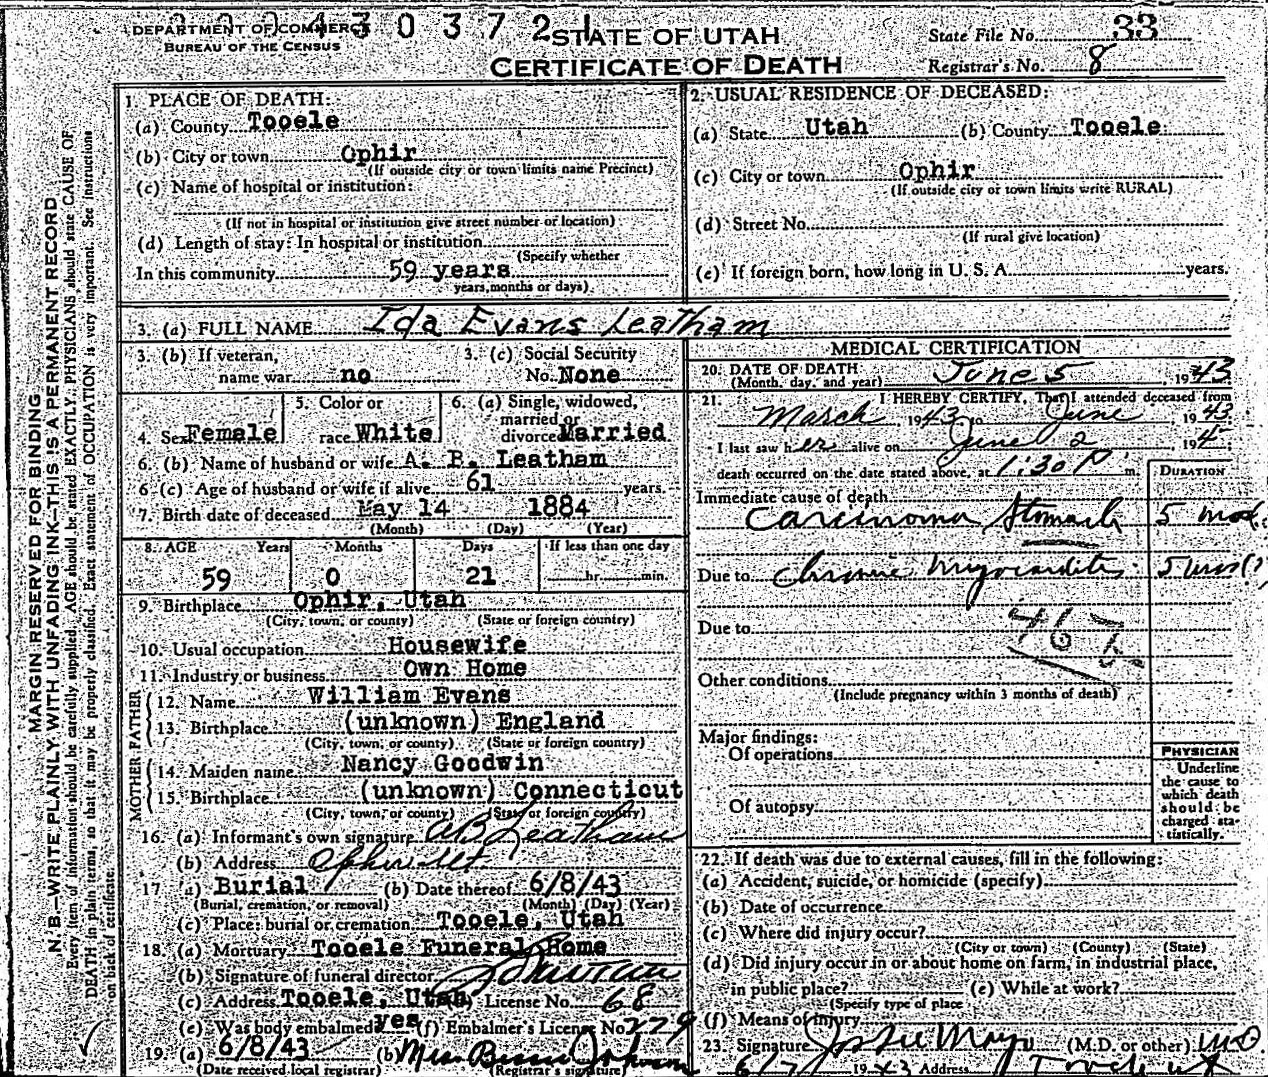 DEPARTMENT OF COMMERCE
BUREAU OF THE CENSUS
STATE OF UTAH
CERTIFICATE OF DEATH
State File No. 33
Registrar's No. 8
1. PLACE OF DEATH:
(a) County Tooele
(b) City or town Ophir
(If outside city or town limits name Precinct)
(c) Name of hospital or institution:
(If not in hospital or institution give street number or location)
(d) Length of stay: In hospital or institution
(Specify whether
In this community 59 years
years, months or days)
2. USUAL RESIDENCE OF DECEASED:
(a) State Utah (b) County Tooele
(c) City or town Ophir
(If outside city or town limits write RURAL)
(d) Street No.
(If rural give location)
(e) If foreign born, how long in U. S. A. years.
3. (a) FULL NAME Ida Evans Leatham
3. (b) If veteran, name war no
3. (c) Social Security No. None
4. Sex Female
5. Color or race White
6. (a) Single, widowed, married or divorced Married
6. (b) Name of husband or wife A. B. Leatham
6 (c) Age of husband or wife if alive 61 years.
7. Birth date of deceased May 14 1884
(Month) (Day) (Year)
8. AGE Years Months Days If less than one day
59 0 21 hr. min.
9. Birthplace Ophir, Utah
(City, town, or county) (State or foreign country)
10. Usual occupation Housewife
11. Industry or business Own Home
FATHER
12. Name William Evans
13. Birthplace (unknown) England
(City, town, or county) (State or foreign country)
MOTHER
14. Maiden name Nancy Goodwin
15. Birthplace (unknown) Connecticut
(City, town, or county) (State or foreign country)
16. (a) Informant's own signature AB Leatham
(b) Address Ophir Ut
17 (a) Burial (b) Date thereof 6/8/43
(Burial, cremation, or removal) (Month) (Day) (Year)
(c) Place: burial or cremation Tooele, Utah
18. (a) Mortuary Tooele Funeral Home
(b) Signature of funeral director
(c) Address Tooele, Utah License No. 68
(e) Was body embalmed yes (f) Embalmer's License No. 279
19. (a) 6/8/43 (b) Mrs.
(Date received local registrar) (Registrar's signature)
MEDICAL CERTIFICATION
20. DATE OF DEATH June 5, 1943
(Month, day, and year)
21. I HEREBY CERTIFY, That I attended deceased from
March 1943 to June, 1943.
I last saw her alive on June 2 194
death occurred on the date stated above, at 1:30 P m.
DURATION
Immediate cause of death
Carcinoma Stomach 5 mos.
Due to Chronic Myocarditis 5
Due to
46
Other conditions
(Include pregnancy within 3 months of death)
Major findings:
Of operations
Of autopsy
PHYSICIAN
Underline
the cause to
which death
should be
charged sta-
tistically.
22. If death was due to external causes, fill in the following:
(a) Accident, suicide, or homicide (specify)
(b) Date of occurrence
(c) Where did injury occur?
(City or town) (County) (State)
(d) Did injury occur in or about home on farm, in industrial place,
in public place? (e) While at work?
(Specify type of place
(f) Means of injury
23. Signature (M.D. or other) MD
6/7/ 1943 Address Tooele Ut
MARGIN RESERVED FOR BINDING
N. B.—WRITE PLAINLY, WITH UNFADING INK—THIS IS A PERMANENT RECORD
Every item of information should be carefully supplied. AGE should be stated EXACTLY. PHYSICIANS should state CAUSE OF
DEATH in plain terms, so that it may be properly classified. Exact statement of OCCUPATION is very important. See instructions
on back of certificate.